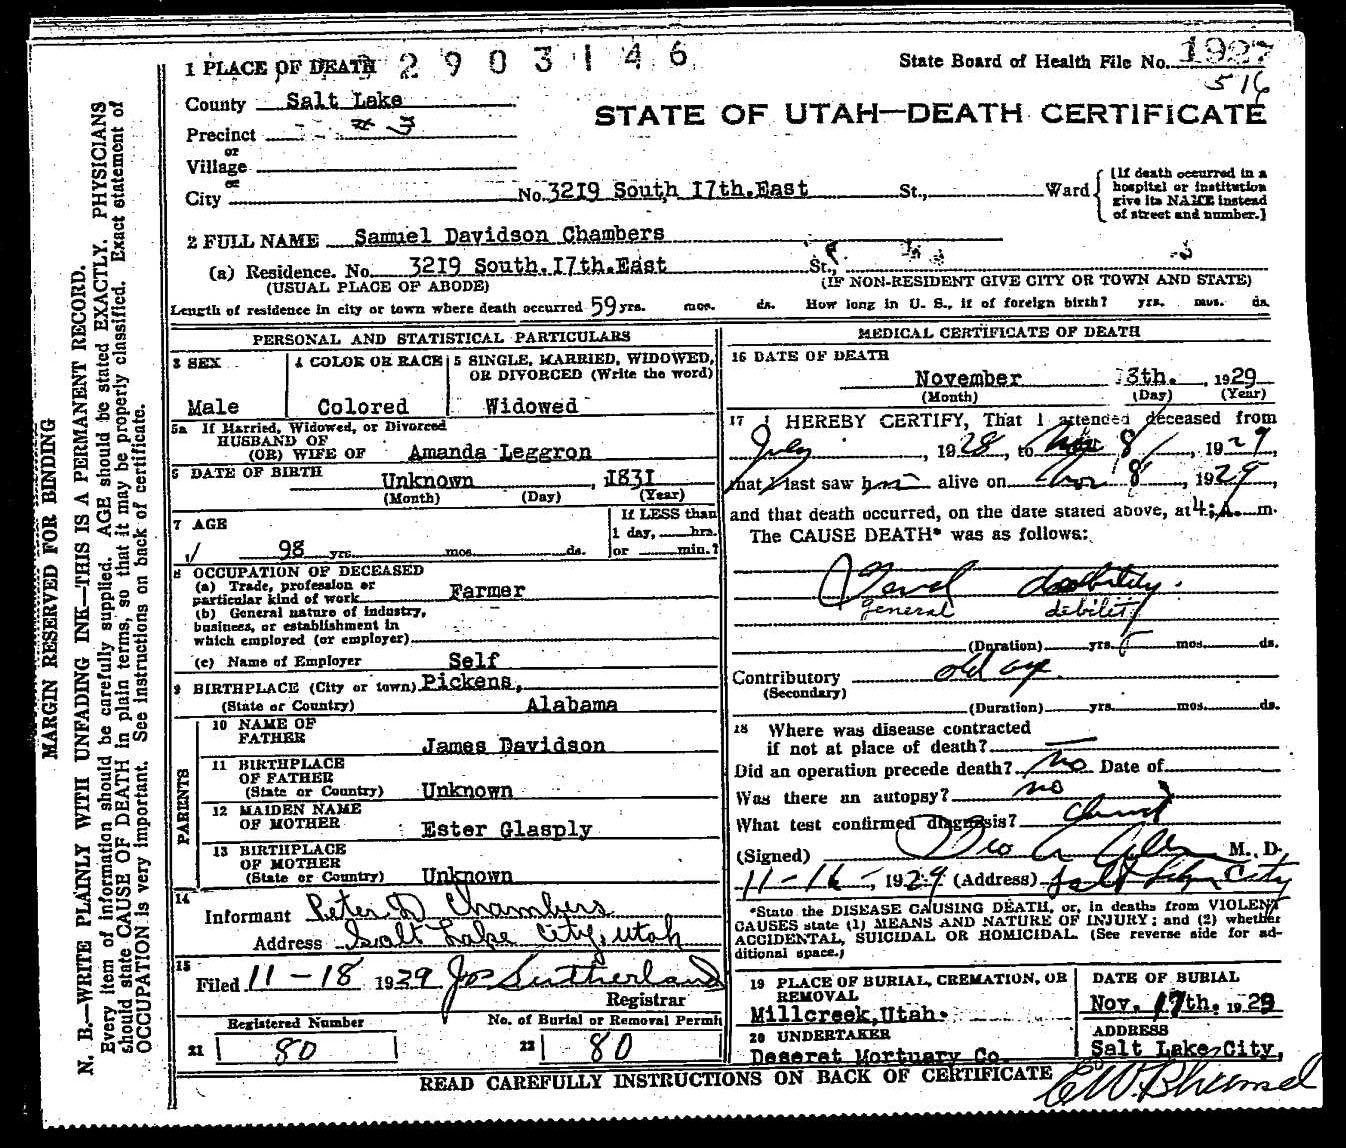 1 PLACE OF DEATH 2903146
State Board of Health File No. 1927
516
County Salt Lake
STATE OF UTAH—DEATH CERTIFICATE
Precinct #5
or
Village
or
City No. 3219 South 17th.East St., Ward
[If death occurred in a hospital or institution give its NAME instead of street and number.]
2 FULL NAME Samuel Davidson Chambers
(a) Residence. No. 3219 South.17th.East St.,
(USUAL PLACE OF ABODE) (IF NON-RESIDENT GIVE CITY OR TOWN AND STATE)
Length of residence in city or town where death occurred 59 yrs. mos. ds. How long in U. S., if of foreign birth? yrs. mos. ds.
PERSONAL AND STATISTICAL PARTICULARS
3 SEX
Male
4 COLOR OR RACE
Colored
5 SINGLE, MARRIED, WIDOWED, OR DIVORCED (Write the word)
Widowed
5a If Married, Widowed, or Divorced
HUSBAND OF
(OR) WIFE OF Amanda Leggron
6 DATE OF BIRTH Unknown, 1831
(Month) (Day) (Year)
7 AGE
98 yrs. mos. ds.
If LESS than
1 day, hrs.
or min.?
8 OCCUPATION OF DECEASED
(a) Trade, profession or
particular kind of work Farmer
(b) General nature of industry,
business, or establishment in
which employed (or employer)
(c) Name of Employer Self
9 BIRTHPLACE (City or town) Pickens,
(State or Country) Alabama
PARENTS
10 NAME OF
FATHER James Davidson
11 BIRTHPLACE
OF FATHER
(State or Country) Unknown
12 MAIDEN NAME
OF MOTHER Ester Glasply
13 BIRTHPLACE
OF MOTHER
(State or Country) Unknown
14
Informant Peter D Chambers
Address Salt Lake City, Utah
15
Filed 11-18 1929 Jos Sutherland
Registrar
Registered Number
21 80
No. of Burial or Removal Permit
22 80
MEDICAL CERTIFICATE OF DEATH
16 DATE OF DEATH
November 13th., 1929
(Month) (Day) (Year)
17 I HEREBY CERTIFY, That I attended deceased from
July, 1928, to Nov 8, 1929,
that I last saw him alive on Nov 8, 1929,
and that death occurred, on the date stated above, at 4:A. m.
The CAUSE DEATH* was as follows:
Genral deebility.
general debility
(Duration) yrs. mos. ds.
Contributory old age.
(Secondary)
(Duration) yrs. mos. ds.
18 Where was disease contracted
if not at place of death?
Did an operation precede death? No Date of
Was there an autopsy? no
What test confirmed diagnosis?
(Signed) Geo M. D.
11-16-, 1929 (Address) Salt Lake City
*State the DISEASE CAUSING DEATH, or, in deaths from VIOLENT
CAUSES state (1) MEANS AND NATURE OF INJURY; and (2) whether
ACCIDENTAL, SUICIDAL OR HOMICIDAL. (See reverse side for ad-
ditional space.)
19 PLACE OF BURIAL, CREMATION, OR
REMOVAL
Millcreek,Utah.
DATE OF BURIAL
Nov. 17th. 1929
20 UNDERTAKER
Deseret Mortuary Co.
ADDRESS
Salt Lake City,
READ CAREFULLY INSTRUCTIONS ON BACK OF CERTIFICATE
MARGIN RESERVED FOR BINDING
N. B.—WRITE PLAINLY WITH UNFADING INK—THIS IS A PERMANENT RECORD.
Every item of information should be carefully supplied. AGE should be stated EXACTLY. PHYSICIANS
should state CAUSE OF DEATH in plain terms, so that it may be properly classified. Exact statement of
OCCUPATION is very important. See instructions on back of certificate.